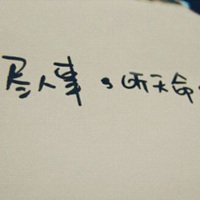 尽人事。听天命。